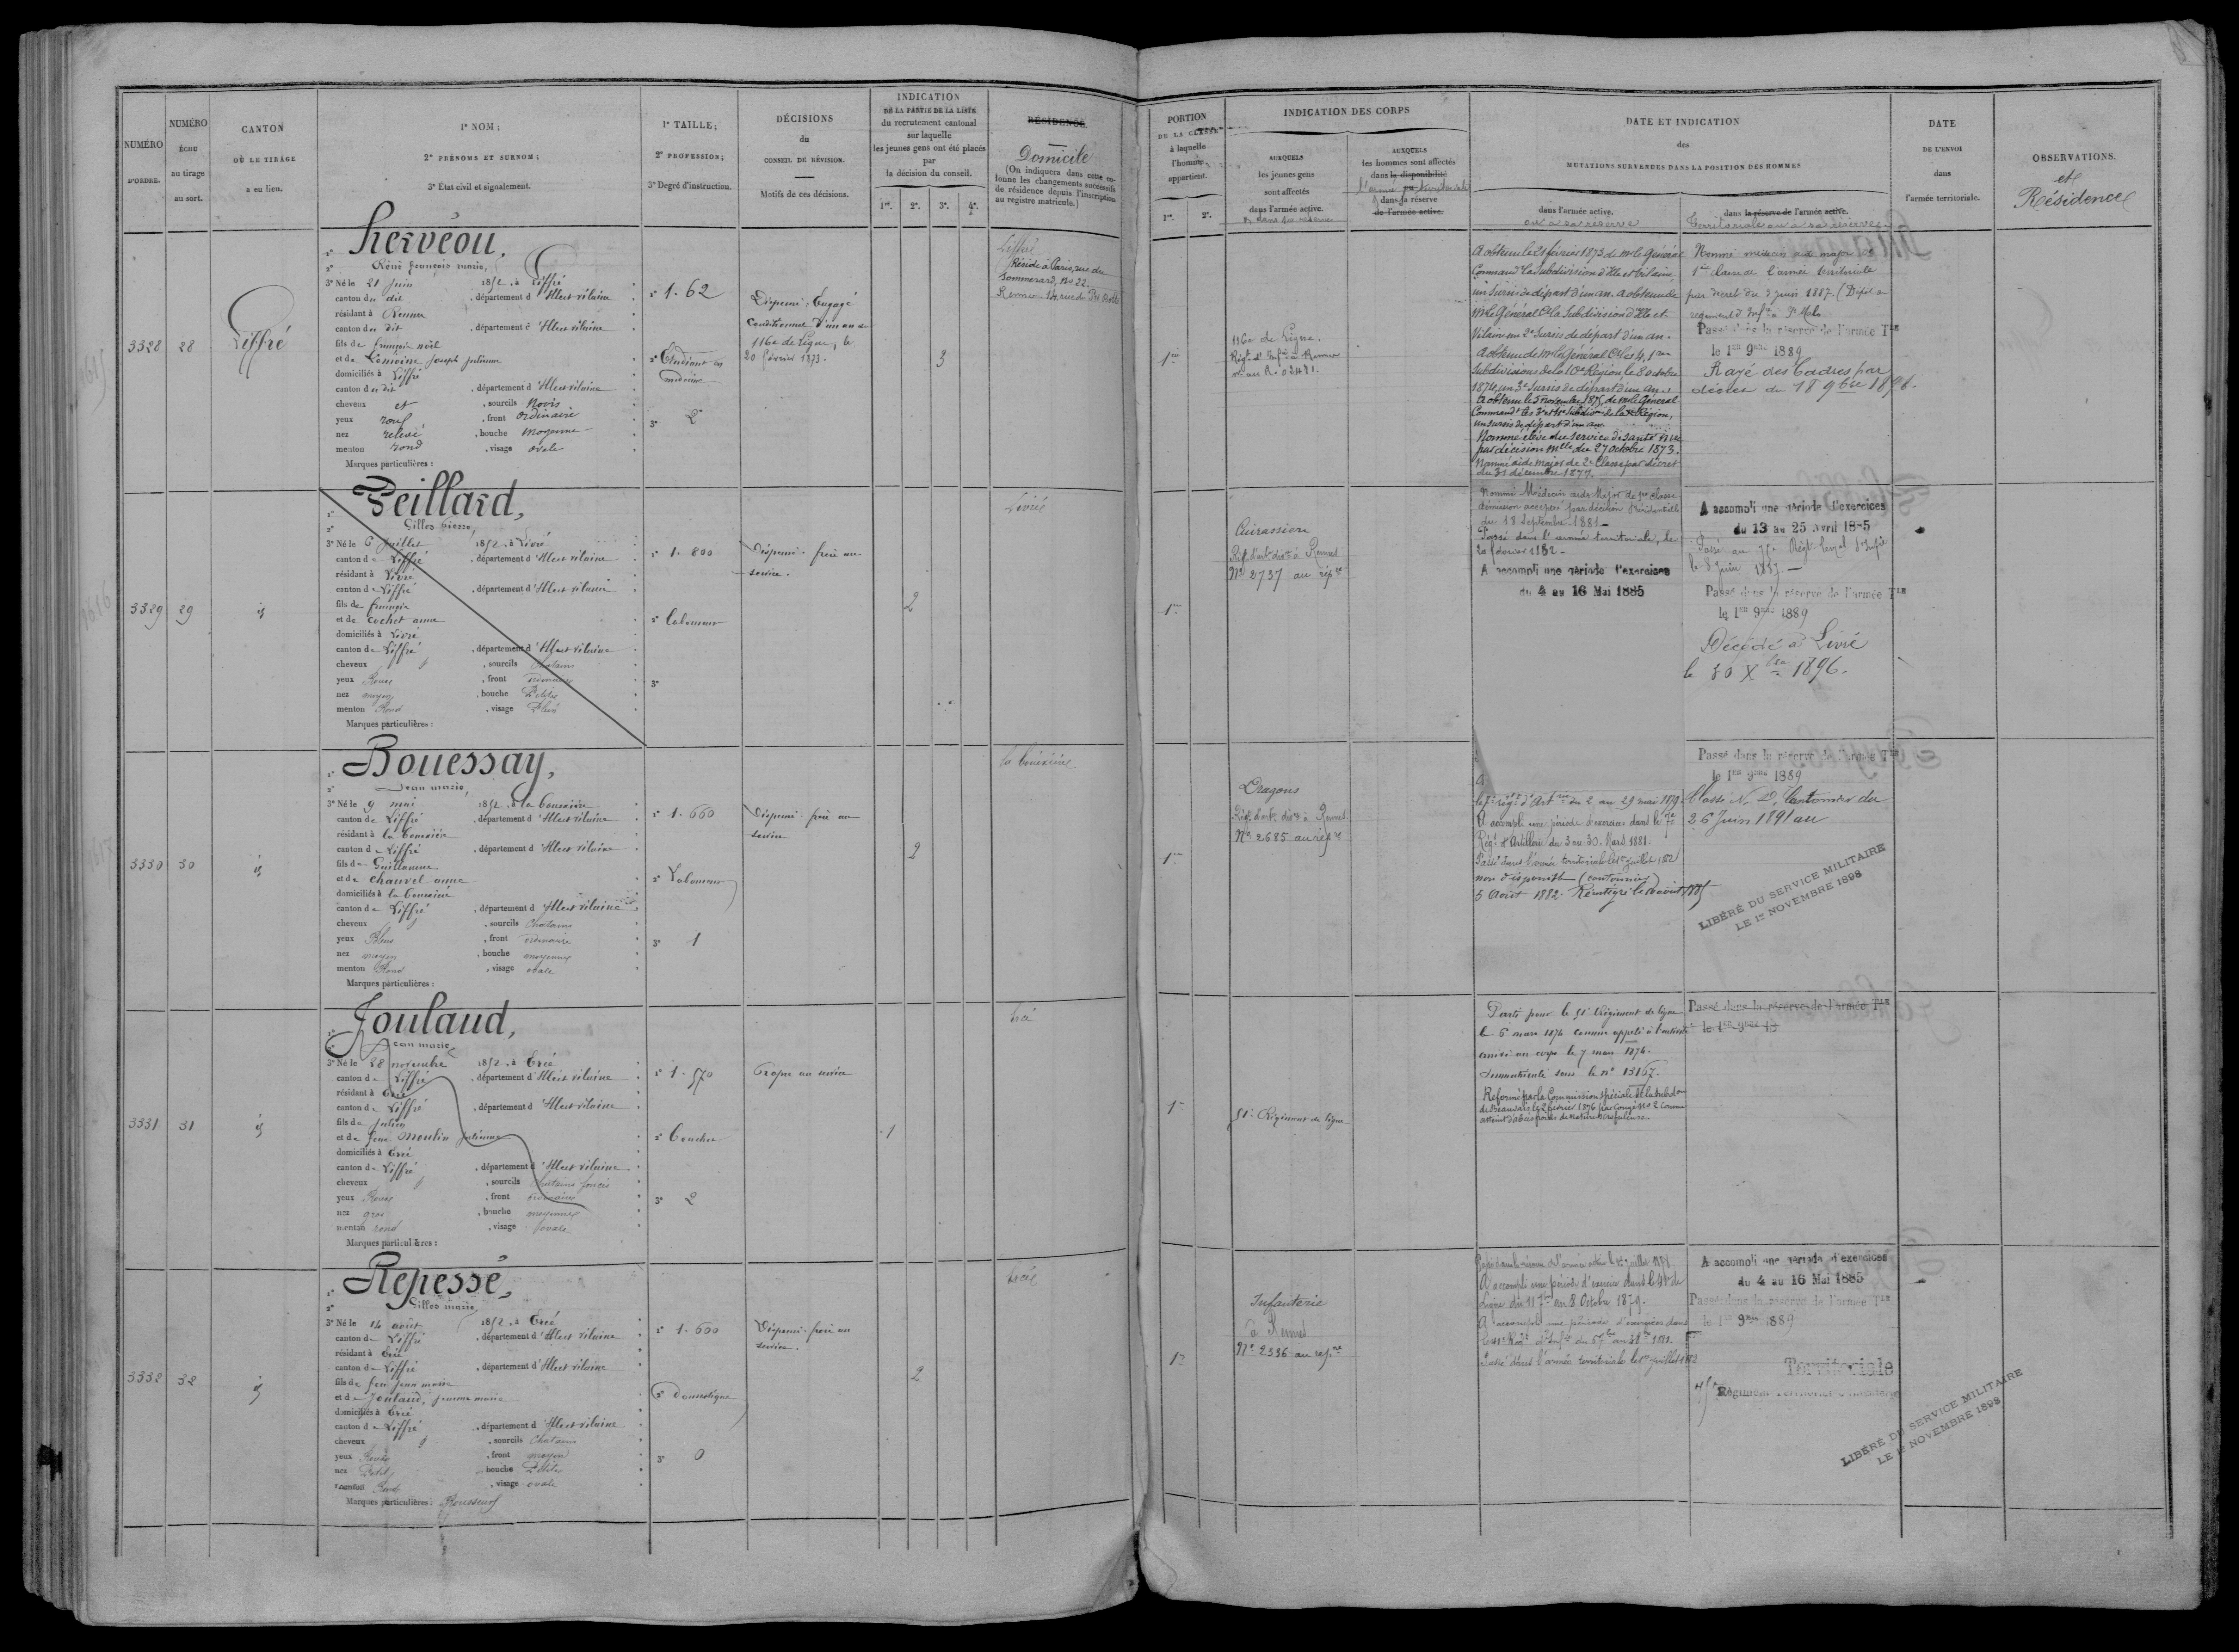 NUMÉRO
D'ORDRE.
NUMÉRO
ÉCHU
au tirage
au sort.
CANTON
OÙ LE TIRAGE
a eu lieu.
1° NOM;
2° PRÉNOMS ET SURNOM;
3° État civil et signalement.
1° TAILLE;
2° PROFESSION;
3° Degré d'instruction.
DÉCISIONS
du
CONSEIL DE RÉVISION.
Motifs de ces décisions.
INDICATION
DE LA PARTIE DE LA LISTE
du recrutement cantonal
sur laquelle
les jeunes gens ont été placés
par
la décision du conseil.
1re. 2e. 3e. 4e.
RÉSIDENCE.
Domicile
(On indiquera dans cette co-
lonne les changements successifs
de résidence depuis l'inscription
au registre matricule.)
PORTION
DE LA CLASSE
à laquelle
l'homme
appartient.
1re. 2e.
INDICATION DES CORPS
AUXQUELS
les jeunes gens
sont affectés
dans l'armée active.
AUXQUELS
les hommes sont affectés
dans la disponibilité
ou
dans la réserve
de l'armée active.
DATE ET INDICATION
des
MUTATIONS SURVENUES DANS LA POSITION DES HOMMES
dans l'armée active.
ou sa réserve
dans la réserve de l'armée active.
Territoriale ou sa réserve
DATE
DE L'ENVOI
dans
l'armée territoriale.
OBSERVATIONS.
et
Résidence
3328 28 Liffré
Herveou,
René françois marie,
3° Né le 21 Juin 1852, à Liffré
canton du dit , département d'Ille et vilaine
résidant à Rennes
canton du dit , département d'Ille et vilaine
fils de françois noël
et de Lemoine joseph julienne
domiciliés à Liffré
canton du dit , département d'Ille et vilaine
cheveux et , sourcils Noirs
yeux roux , front ordinaire
nez relevé , bouche moyenne
menton rond , visage ovale
Marques particulières :
1° 1.62
2° Etudiant en
médecine
3° 2
Dispensé, Engagé
Conditionnel d'un an au
116e de Ligne, le
20 février 1873.
3
Liffré
Réside à Paris, rue du
Sommerard, No 22.
1re
116e de Ligne.
A obtenu le 21 février 1873 de Mr le Général
Command la Subdivision d'Ille et Vilaine
un Sursis de départ d'un an. A obtenu de
Mr le Général Ct la Subdivision d'Ille et
Vilaine un 2e Sursis de départ d'un an.
A obtenu de Mr le Général Ct les 4, 1re
Subdivisions de la 10e Région, le 8 octobre
1874, un 3e Sursis de départ d'un an.
A obtenu le 5 novembre 1875, de Mr le Général
un sursis de départ d'un an.
Nommé élève du service de santé
par décision mlle du 27 octobre 1873.
Nommé aide major de 2e Classe par décret
du 31 décembre 1877.
Nommé Médecin aide Major de 1re classe
démission acceptée par décision Présidentielle
du 18 Septembre 1881
Passé dans l'armée territoriale, le
20 février 1882.
Nommé médecin aide major de
1re classe de l'armée territoriale
par décret du 3 juin 1887. (Dépôt du
régiment d'Infie à St Malo
Passé dans la réserve de l'armée Tle
le 1er 9bre 1889
Rayé des Cadres par
décret du 18 9bre 1898.
3329 29 id
Peillard,
Gilles Pierre,
3° Né le 6 Juillet 1852, à Livré
canton de Liffré , département d'Ille et vilaine
résidant à Livré
canton de Liffré , département d'Ille et vilaine
fils de françois
et de Cochet anne
domiciliés à Livré
canton de Liffré , département d'Ille et vilaine
cheveux , sourcils Chatains
yeux Roux , front ordinaire
nez moyen , bouche Petite
menton Rond , visage Plein
Marques particulières :
1° 1.800
2° Laboureur
3°
Dispensé. frère au
service.
2
Livré
1re
Cuirassiers
No 2737 au rép re
A accompli une période d'exercices
du 4 au 16 Mai 1885
A accompli une période d'exercices
du 13 au 25 avril 1885
le 8 Juin 1887.
Passé dans la réserve de l'armée Tle
le 1er 9bre 1889
Décédé à Livré
le 30 Xbre 1896.
3330 30 id
Bouessay,
Jean marie,
3° Né le 9 mai 1852, à la Bouexière
canton de Liffré , département d'Ille et vilaine
résidant à la Bouexière
canton de Liffré , département d'Ille et vilaine
fils de Guillaume
et de Chauvel anne
domiciliés à la Bouexière
canton de Liffré , département d'Ille et vilaine
cheveux , sourcils Chatains
yeux Bleus , front ordinaire
nez moyen , bouche moyenne
menton Rond , visage ovale
Marques particulières :
1° 1.660
2° Laboureur
3° 1
Dispensé. frère au
service
2
la Bouëxière
1re
Dragons
No 2685 au rép re
le 7e régt d'Artrie du 2 au 29 mai 1879.
A accompli une période d'exercices dans le 7e
Régt d'Artillerie du 3 au 30 Mars 1881.
Passé dans l'armée territoriale le 1er juillet 1882
non disponible (cantonnier)
5 Août 1882. Réintégré le 10 août 1885
Passé dans la réserve de l'armée Tle
le 1er 9bre 1889
Classé N. D. Cantonnier du
26 Juin 1891 au
LIBÉRÉ DU SERVICE MILITAIRE
LE 1er NOVEMBRE 1898
3331 31 id
Joulaud,
Jean marie,
3° Né le 28 novembre 1852, à Ercé
canton de Liffré , département d'Ille et vilaine
résidant à Ercé
canton de Liffré , département d'Ille et vilaine
fils de julien
et de feue Moulin julienne
domiciliés à Ercé
canton de Liffré , département d'Ille et vilaine
cheveux , sourcils Chatains foncés
yeux Roux , front ordinaire
nez gros , bouche moyenne
menton rond , visage ovale
Marques particulières :
1° 1.570
2° Boucher
3° 2
Propre au service
1
Ercé
1re
51e Régiment de ligne
Parti pour le 51e Régiment de ligne
le 6 mars 1874 comme appelé à l'activité
arrivé au corps le 7 mars 1874.
Immatriculé sous le no 13167.
Réformé par la Commission spéciale de la subdon
de Beauvais le 2 février 1876 par Congé No 2 comme
atteint d'abcès froids de nature scrofuleuse.
Passé dans la réserve de l'armée Tle
le 1er 9bre 18
3332 32 id
Repessé,
Gilles marie,
3° Né le 14 août 1852, à Ercé
canton de Liffré , département d'Ille et vilaine
résidant à Ercé
canton de Liffré , département d'Ille et vilaine
fils de feu jean marie
et de Joulaud, jeanne marie
domiciliés à Ercé
canton de Liffré , département d'Ille et vilaine
cheveux , sourcils Chatains
yeux Roux , front moyen
nez Petit , bouche Petite
menton Rond , visage ovale
Marques particulières : Rousseurs
1° 1.600
2° Domestique
3° 0
Dispensé. frère au
service.
2
Ercé
1re
Infanterie
à Rennes
No 2336 au rép re
A accompli une période d'exercices dans le 41e de
Ligne du 11 7bre au 8 Octobre 1879.
A accompli une période d'exercices dans
Passé dans l'armée territoriale le 1er juillet 1882
A accompli une période d'exercices
du 4 au 16 Mai 1885
Passé dans la réserve de l'armée Tle
le 1er 9bre 1889
Territoriale
Régiment Territorial d'Infanterie
LIBÉRÉ DU SERVICE MILITAIRE
LE 1er NOVEMBRE 1898